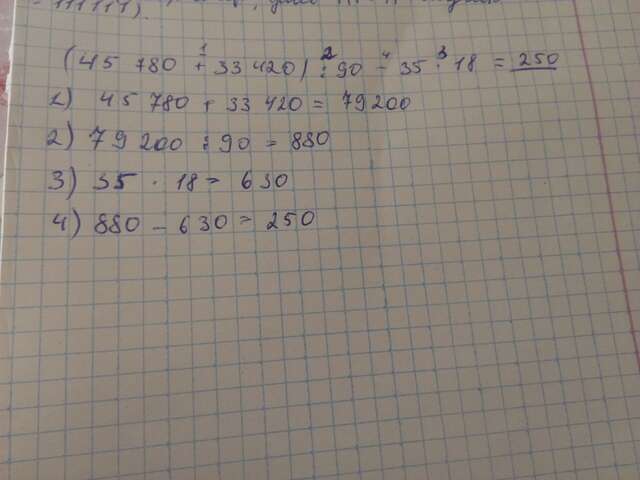 - 111111).
(45 780 + 33 420) : 90 - 35 · 18 = 250
1 2 4 3
1) 45 780 + 33 420 = 79200
2) 79 200 : 90 = 880
3) 35 · 18 = 630
4) 880 - 630 = 250